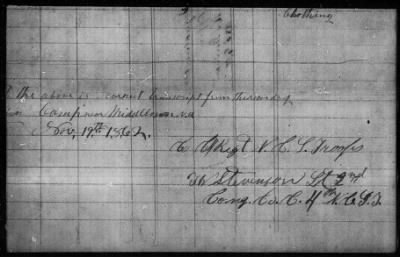 Clothing
t the above is correct transcript from the records
in Camp near Middletown Va
Nov. 19th 1862.
Co C 4 Regt N. C. S. Troops
W Stevenson Lt 2nd
Comg. Co. C. 4th N. C. S. T.